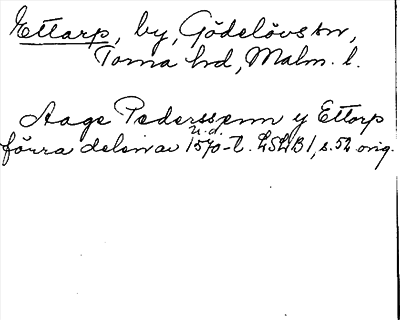 Ettarp, by, Gödelövs sn,
Torna hd, Malm. l.
Aage Pederssenn y Ettorp
u.d.
förra delen av 1570-t. LSLB 1, s. 52 orig.